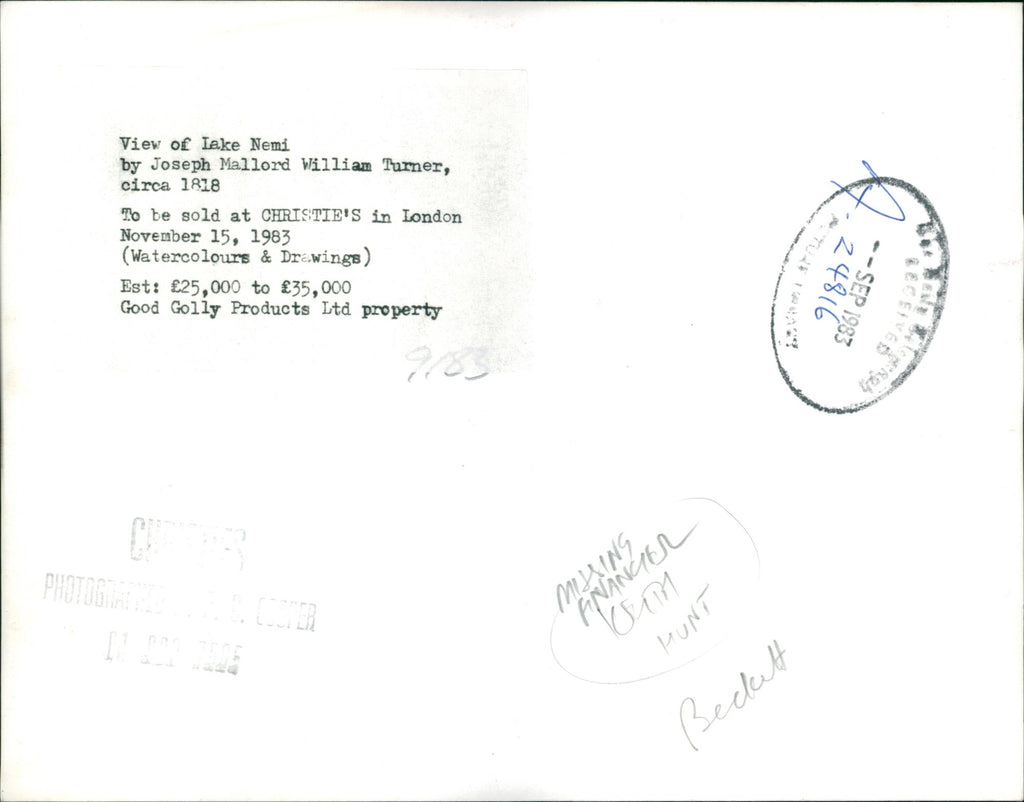 View of Lake Nemi
by Joseph Mallord William Turner,
circa 1818
To be sold at CHRISTIE'S in London
November 15, 1983
(Watercolours & Drawings)
Est: £25,000 to £35,000
Good Golly Products Ltd property
9/83
A-24816
RECEIVED
--SEP 1983
CHRISTIES
PHOTOGRAPHED A. C. COOPER
MISSING
FINANCIER
KEITH
HUNT
Beckett